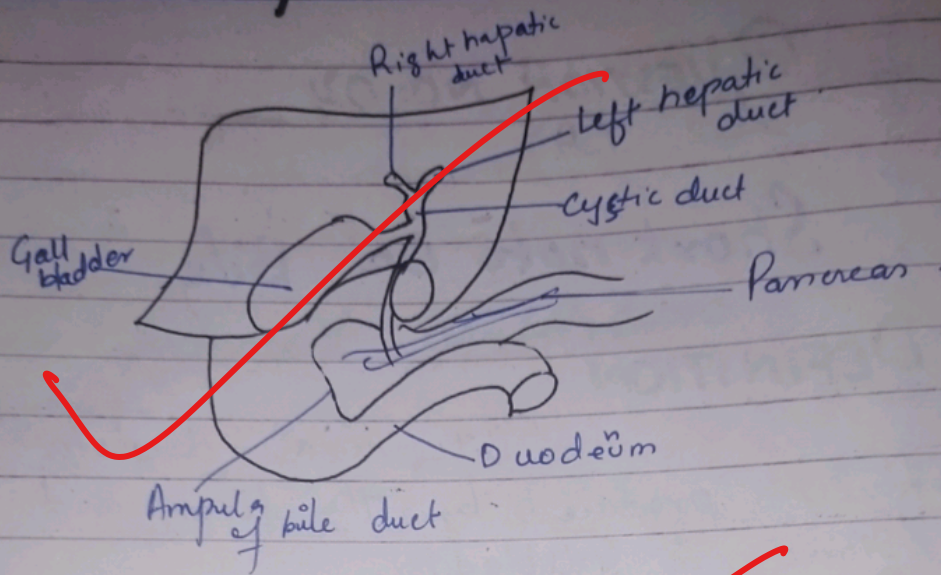 Right hapatic
duct
Left hepatic
duct
Cystic duct
Gall
bladder
Panrcreas
Duodenum
Ampula
of bile duct